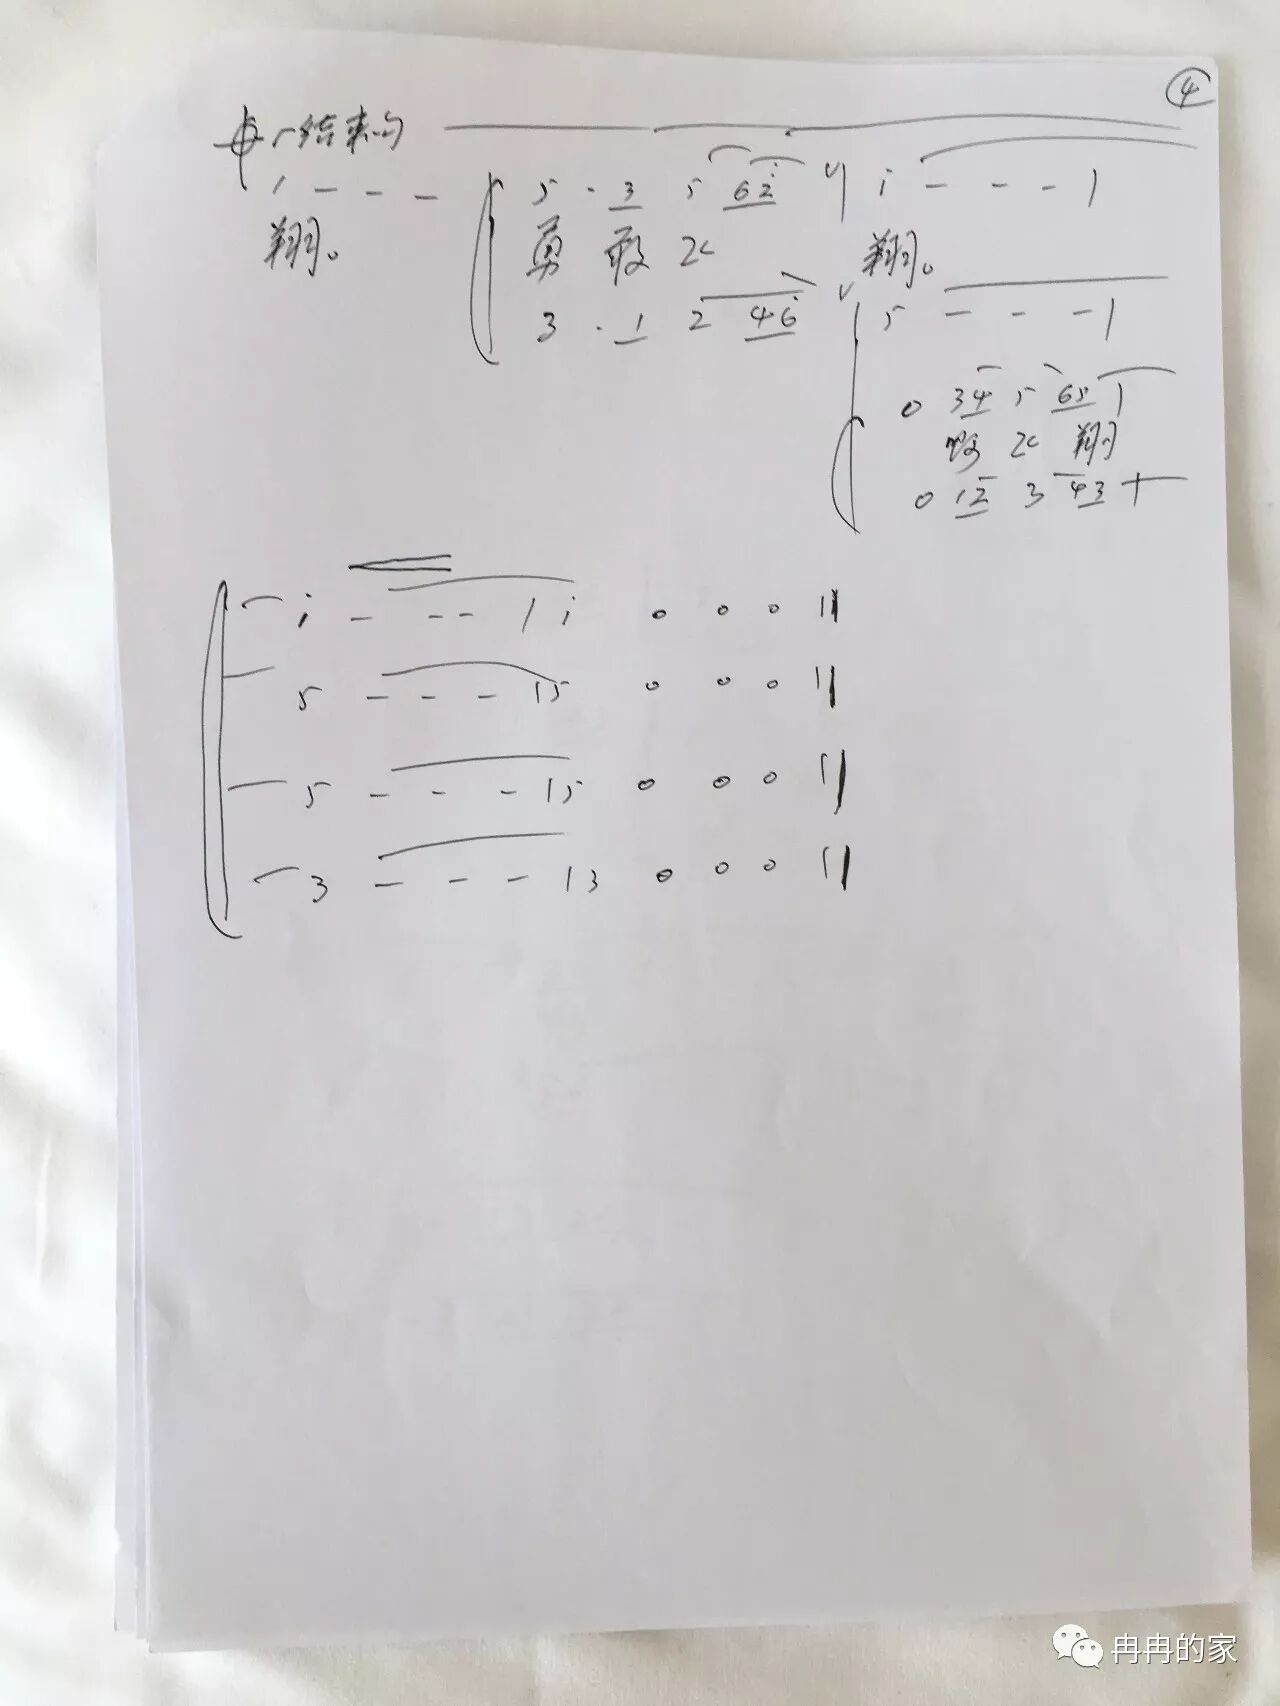 ④
结束句
1 - - - 5 · 3 5 62̇ V | i̇ - - - |
翔。 勇敢飞 翔。
3 · 1 2 46 V 5 - - - |
0 34 5 65 |
飞 翔
0 12 3 43 |
i̇ - - - | i̇ 0 0 0 ‖
5 - - - | 5 0 0 0 ‖
5 - - - | 5 0 0 0 ‖
3 - - - | 3 0 0 0 ‖
冉冉的家